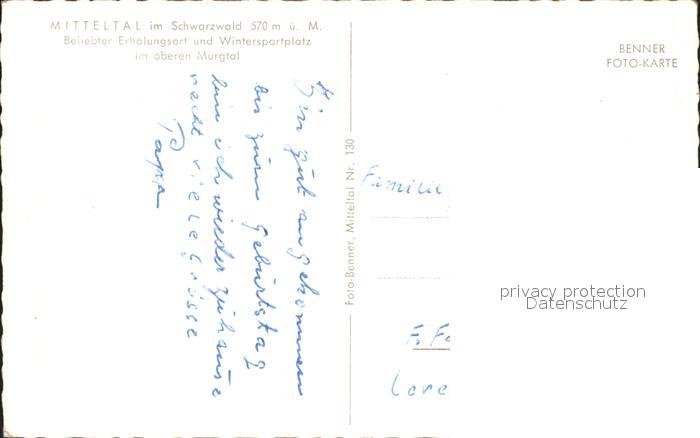 MITTELTAL im Schwarzwald 570 m ü. M.
Beliebter Erholungsort und Wintersportplatz
im oberen Murgtal
BENNER
FOTO-KARTE
Bin gut angekommen
bis zum Geburtstag
bin ich wieder zuhause
recht viele Grüsse
Papa
Foto-Benner, Mitteltal Nr. 130
Familie
privacy protection
Datenschutz
F. F